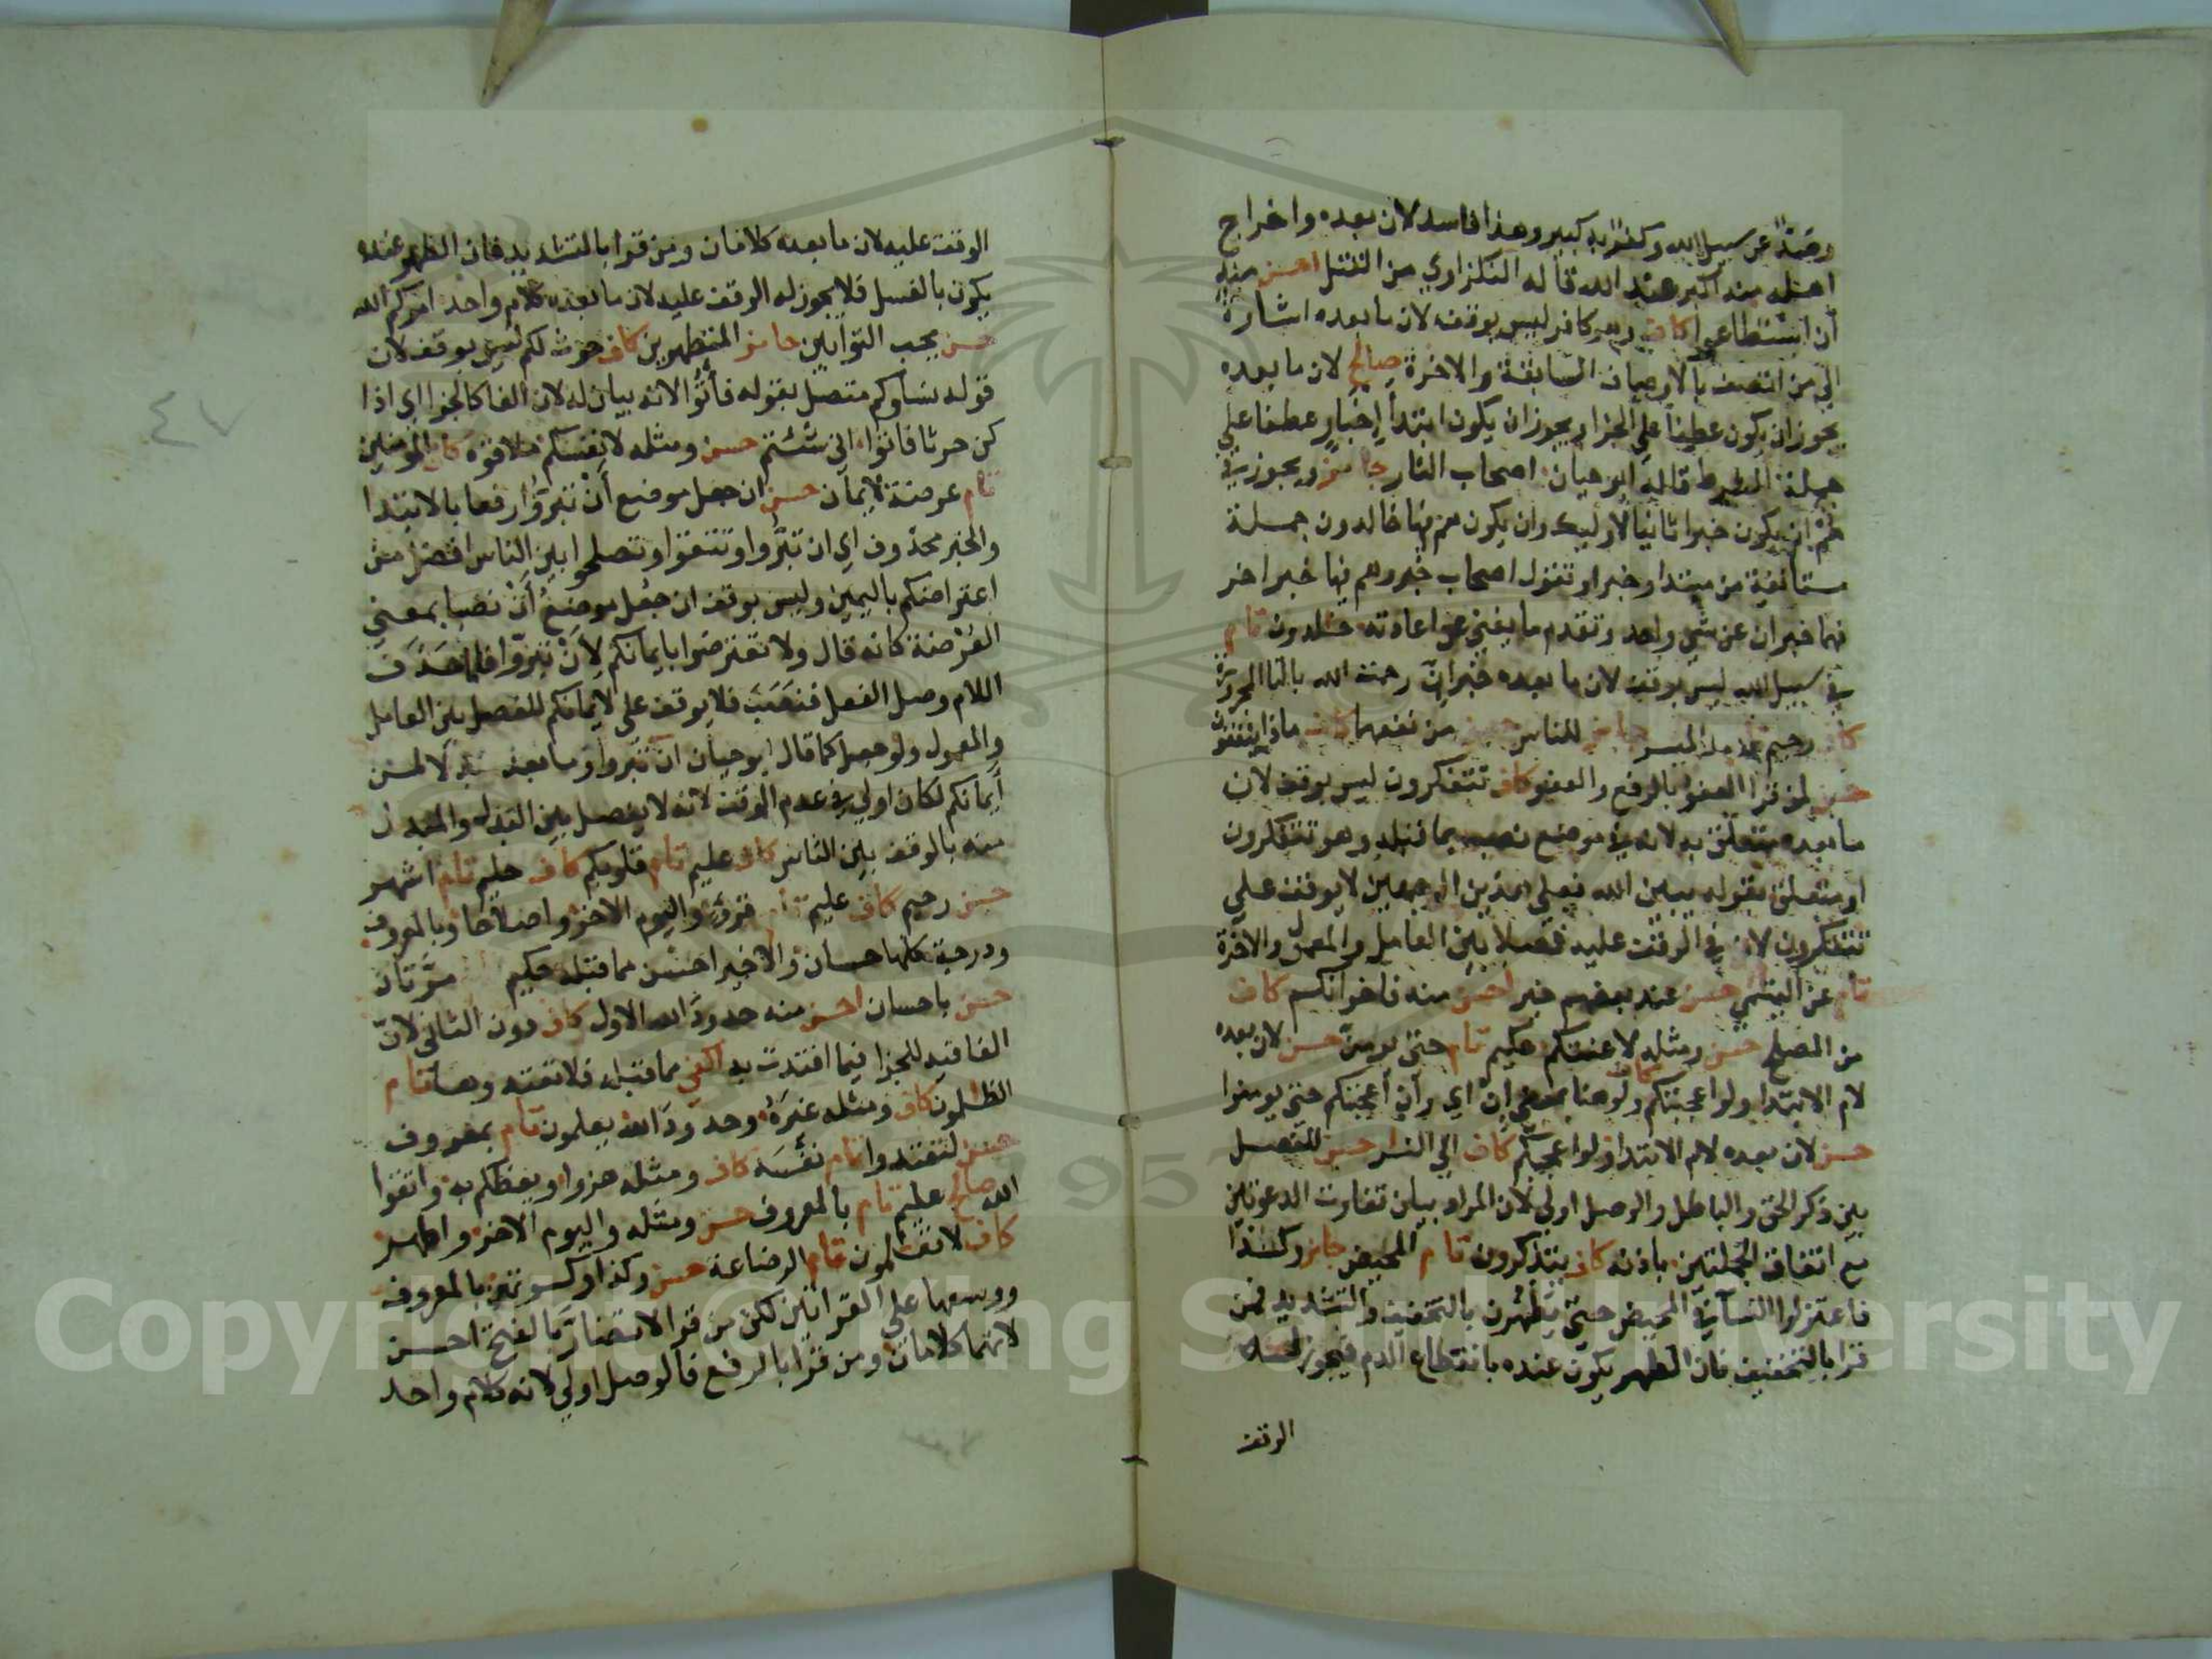 وصدٌّ عن سبيل الله وكفرٌ به كبير وهذا فاسد لان بعده واخراج
اهله منه اكبر عند الله قاله النكزاوي من القتل احسن منه
ان استطاعوا كاف وهو كافر ليس بوقف لان ما بعده اشارة
الى من اتصف بالاوصاف السابقة والاخرة صالح لان ما بعده
يجوز ان يكون عطفا على الجزا ويجوز ان يكون ابتدا إخبار عطفا على
جملة الشرط قاله ابو حيان اصحاب النار جائز ويجوز في
هم ان يكون خبرا ثانيا لاوليك وان يكون هم فيها خالدون جملة
مستانفة من مبتدا وخبر او تقول اصحاب خبر وهم فيها خبر اخر
فهما خبران عن شي واحد وتقدم ما يغني عن اعادته خلدون تام
في سبيل الله ليس بوقف لان ما بعده خبر ان رحمت الله بالتا المجرورة
كاف رحيم تام والميسر جائز للناس حسن من نفعهما كاف ماذا ينفقون
حسن لمن قرا العفو بالرفع والعفو كاف تتفكرون ليس بوقف لان
ما بعده متعلق به لانه في موضع نصب بما قبله وهو تتفكرون
او متعلق بقوله يبين الله فعلى هذين الوجهين لا يوقف على
تتفكرون لان في الوقف عليه فصلا بين العامل والمعمول والاخرة
تام عن اليتمى حسن عند بعضهم خير احسن منه فاخوانكم كاف
من المصلح حسن ومثله لاعنتكم حكيم تام حتى يومن حسن لان بعده
لام الابتدا ولو اعجبتكم كاف ولو هنا بمعنى ان اي وان اعجبتكم حتى يومنوا
حسن لان بعده لام الابتدا ولو اعجبكم كاف الى النار حسن للفصل
بين ذكر الحق والباطل والوصل اولى لان المراد بيان تفاوت الدعوتين
مع اتفاق الجملتين باذنه كاف يتذكرون تام المحيض جائز وكذا
فاعتزلوا النسآ في المحيض حتى يطهرن بالتخفيف والتشديد فمن
قرا بالتخفيف فان الطهر يكون عنده بانقطاع الدم فيجوز له
الوقف
الوقف عليه لان ما بعده كلامان ومن قرا بالتشديد فان الطهر عنده
يكون بالغسل فلا يجوز له الوقف عليه لان ما بعده كلام واحد امركم الله
حسن يحب التوابين جائز المتطهرين كاف حرث لكم ليس بوقف لان
قوله نساوكم متصل بقوله فأتوا لانه بيان له لان الفا كالجزا اي اذا
كن حرثا فاتوا انى شئتم حسن ومثله لانفسكم ملاقوه كاف المومنين
تام عرضة لايمانكم حسن ان جعل موضع أنْ تبروا رفعا بالابتدا
والخبر محذوف اي ان تبرُّوا وتتقوا وتصلحوا بين الناس افضل من
اعتراضكم باليمين وليس بوقف ان جعل موضع أنْ نصبا بمعنى
العُرْضة كانه قال ولا تعترضوا بايمانكم لِأنْ تبرّوا فلما حَذَف
اللام وصل الفعل فنَصَبَ فلا يوقف على لايمانكم للفصل بين العامل
والمعمول ولو جعل كما قال ابو حيان ان تبروا وما بعده بدلا من
أيمانكم لكان اولى في عدم الوقف لانه لا يفصل بين البدل والمبدل
منه بالوقف بين الناس كاف عليم تام قلوبكم كاف حليم تام اشهر
حسن رحيم كاف عليم تام قروء واليوم الاخر واصلاحا وبالمعروف
ودرجة كلها حسان والاخير احسن مما قبله حكيم مرّتان
حسن باحسان احسن منه حدود الله الاول كاف دون الثاني لانّ
الفا فيه للجزا فيما افتدت به اكفى مما قبله فلا تعتدوها تام
الظلمون كاف ومثله غيرَهُ وحدود الله يعلمون تام بمعروف
حسن لتعتدوا تام نفسه كاف ومثله هزوا ويعظكم به واتقوا
الله صالح عليم تام بالمعروف حسن ومثله واليوم الاخر واطهر
كاف لا تعلمون تام الرضاعة حسن وكذا وكسوتهن بالمعروف
ووسعها على القراتين لكن من قرا لا تضارَّ بالفتح احسن
لانهما كلامان ومن قرا بالرفع فالوصل اولى لانه كلام واحد
٤٧
Copyright © King Saud University
1957